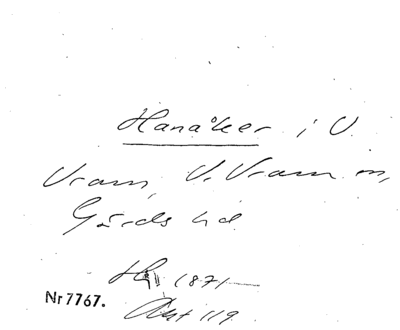 Hanåker i V.
Vram, V. Vram sn,
Gärds hd.
1871
Nr 7767. Akt 119